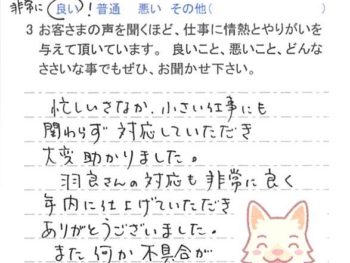 非常に 良い ! 普通 悪い その他( )
3 お客さまの声を聞くほど、仕事に情熱とやりがいを
与えて頂いています。 良いこと、悪いこと、どんな
ささいな事でもぜひ、お聞かせ下さい。
忙しいさなか、小さい仕事にも
関わらず 対応していただき
大変 助かりました。
羽良さんの対応も 非常に 良く
年内に仕上げていただき
ありがとうございました。
また 何か 不具合が